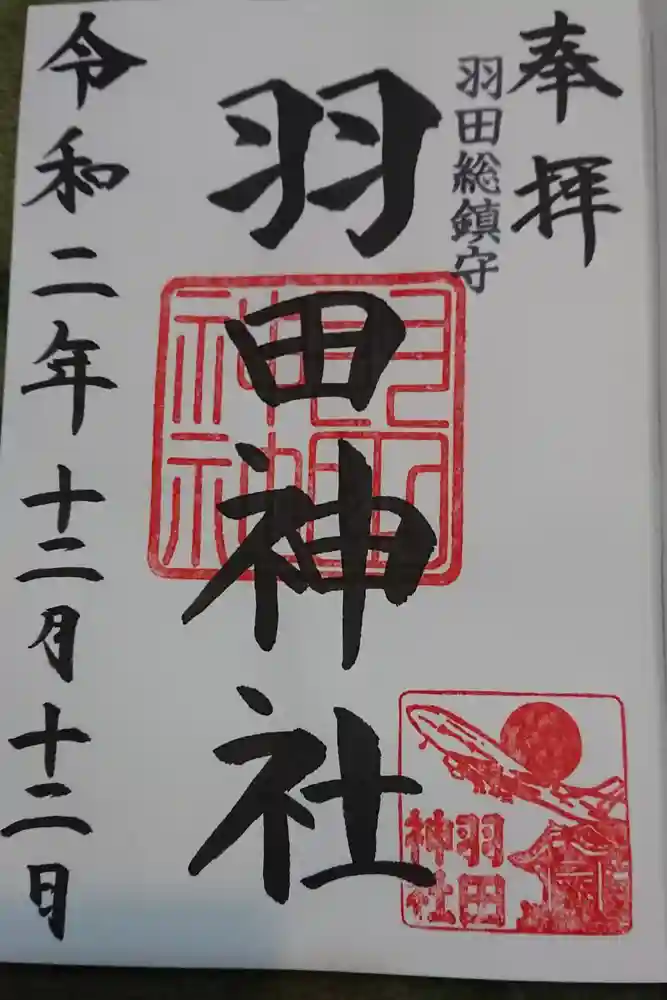 奉拝
羽田総鎮守
羽田神社
羽田
神社
令和二年十二月十二日
羽田
神社